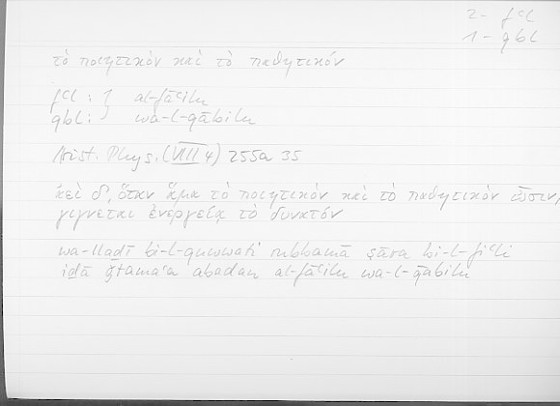 2 - fʿl
1 - qbl
τὸ ποιητικὸν καὶ τὸ παθητικόν
fʿl : } al-fāʿilu
qbl : } wa-l-qābilu
Arist. Phys. (VIII 4) 255a 35
ἀεὶ δ', ὅταν ἅμα τὸ ποιητικὸν καὶ τὸ παθητικὸν ὦσιν,
γίγνεται ἐνεργείᾳ τὸ δυνατόν
wa-lladī bi-l-quwwati rubbamā ṣāra bi-l-fiʿli
idā ǧtamaʿa abadan al-fāʿilu wa-l-qābilu